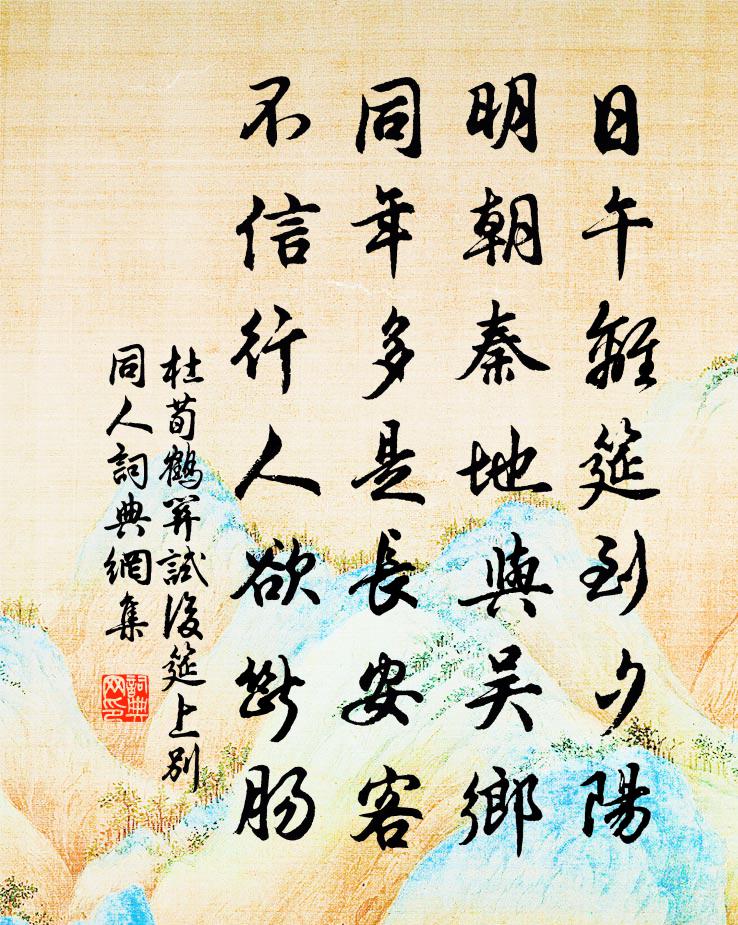 日午離筵到夕陽
明朝秦地與吳鄉
同年多是長安客
不信行人欲斷腸
杜荀鶴關試後筵上別
同人詞典網集
詞典網印